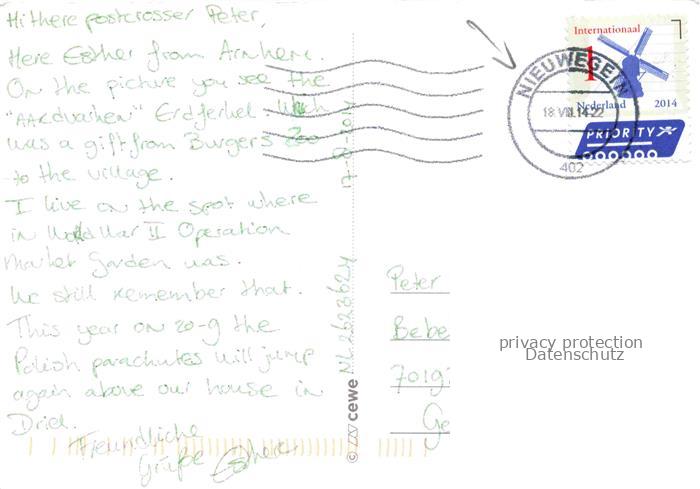 Hi there postcrosser Peter,
Here Esther from Arnhem.
On the picture you see the
"AARDvarken" Erdferkel. Which
was a gift from Burgers Zoo
to the village.
I live on the spot where
in World War II Operation
Market Garden was.
We still remember that.
This year on 20-9 the
Polish parachutes will jump
again above our house in
Driel.
Freundliche
Grüße Esther
NL-2623624
© cewe
Internationaal
1
Nederland 2014
PRIORITY
NIEUWEGEIN
18.VIII.14-22
402
Peter
Bebe
7019
Ge
privacy protection
Datenschutz